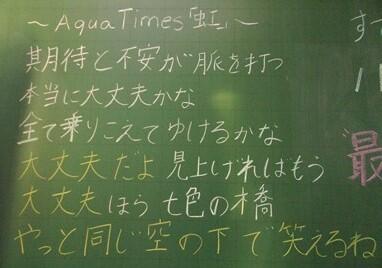 ～AquaTimes「虹」～
期待と不安が脈を打つ
本当に大丈夫かな
全て乗りこえてゆけるかな
大丈夫だよ 見上げればもう
大丈夫 ほら 七色の橋
やっと同じ空の下で笑えるね
す
最